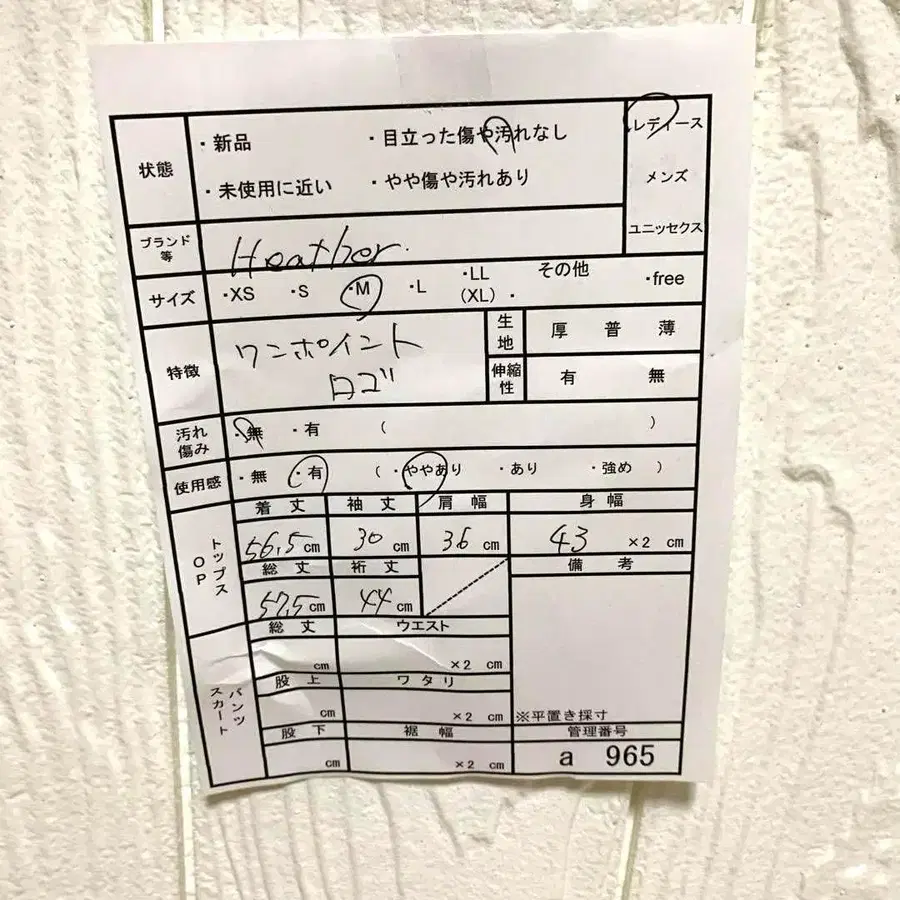 状態
・新品 ・目立った傷や汚れなし
・未使用に近い ・やや傷や汚れあり
レディース
メンズ
ユニッセクス
ブランド等 Heather.
サイズ ・XS ・S ・M ・L ・LL (XL) ・ その他 ・free
特徴 ワンポイント
ロゴ
生地 厚 普 薄
伸縮性 有 無
汚れ傷み ・無 ・有 ( )
使用感 ・無 ・有 ( ・ややあり ・あり ・強め )
トップス OP
着丈 袖丈 肩幅 身幅
56.5cm 30cm 36cm 43 ×2 cm
総丈 裄丈 備考
57.5cm 44cm
パンツ スカート
総丈 ウエスト
cm ×2 cm
股上 ワタリ
cm ×2 cm ※平置き採寸
股下 裾幅 管理番号
cm ×2 cm a 965